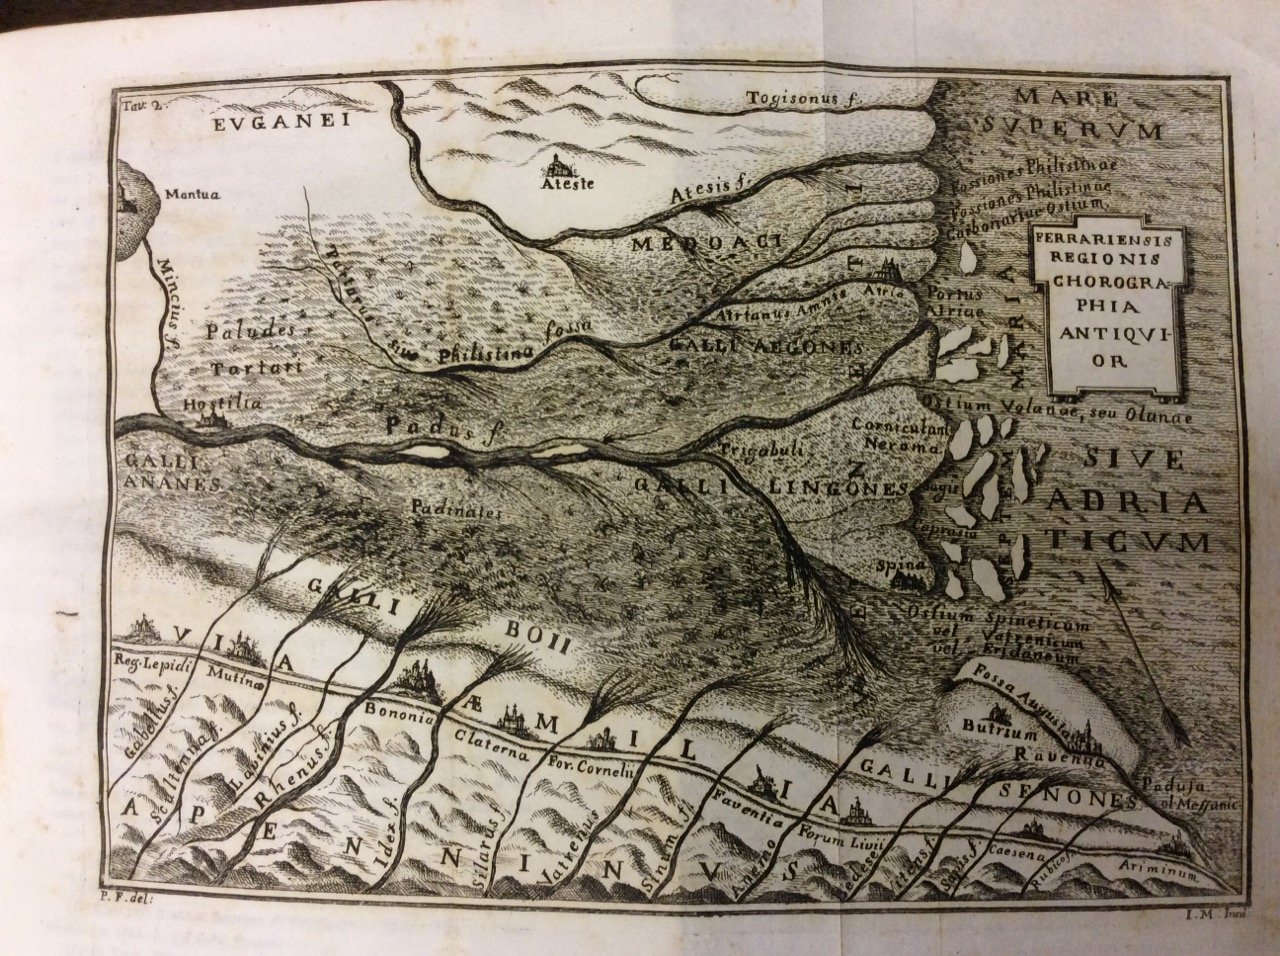 Tav: 2.
EVGANEI
Togisonus f.
MARE
SVPERVM
Ateste
Mantua
Atesis f.
Fossiones Philistinae
Fossiones Philistinae
Carbonariae Ostium.
MEDOACI
FERRARIENSIS
REGIONIS
CHOROGRA-
PHIA
ANTIQVI-
OR
Mincius f.
sive Philistina fossa
Atrianus Amnis
Atria
Portus
Atriae
MARIA
Paludes
Tartari
GALLI AEGONES
Hostilia
Padus f.
Ostium Volanae, seu Olanae
Trigabuli
SEPTEM
SIVE
ADRIA
TICVM
GALLI
ANANES
GALLI LINGONES
Padinates
Caprasia
Spina
GALLI BOII
Ostium Spineticum
vel Vatrenicum
vel Eridaneum
VIA ÆMILIA
Reg. Lepidi
Mutina
Bononia
Claterna
For. Cornelii
Faventia
Forum Livii
Caesena
Ariminum
Fossa Augusta
Butrium
Ravenna
GALLI SENONES
Padusa
ol Messanic
Gabellus f.
Scultenna f.
Lavinius f.
Rhenus f.
Idex f.
Silarus f.
Vatrenus
Sinnum f.
Anemo
Vitens f.
Sapis f.
APENNINVS
P. F. del:
I. M. Incid